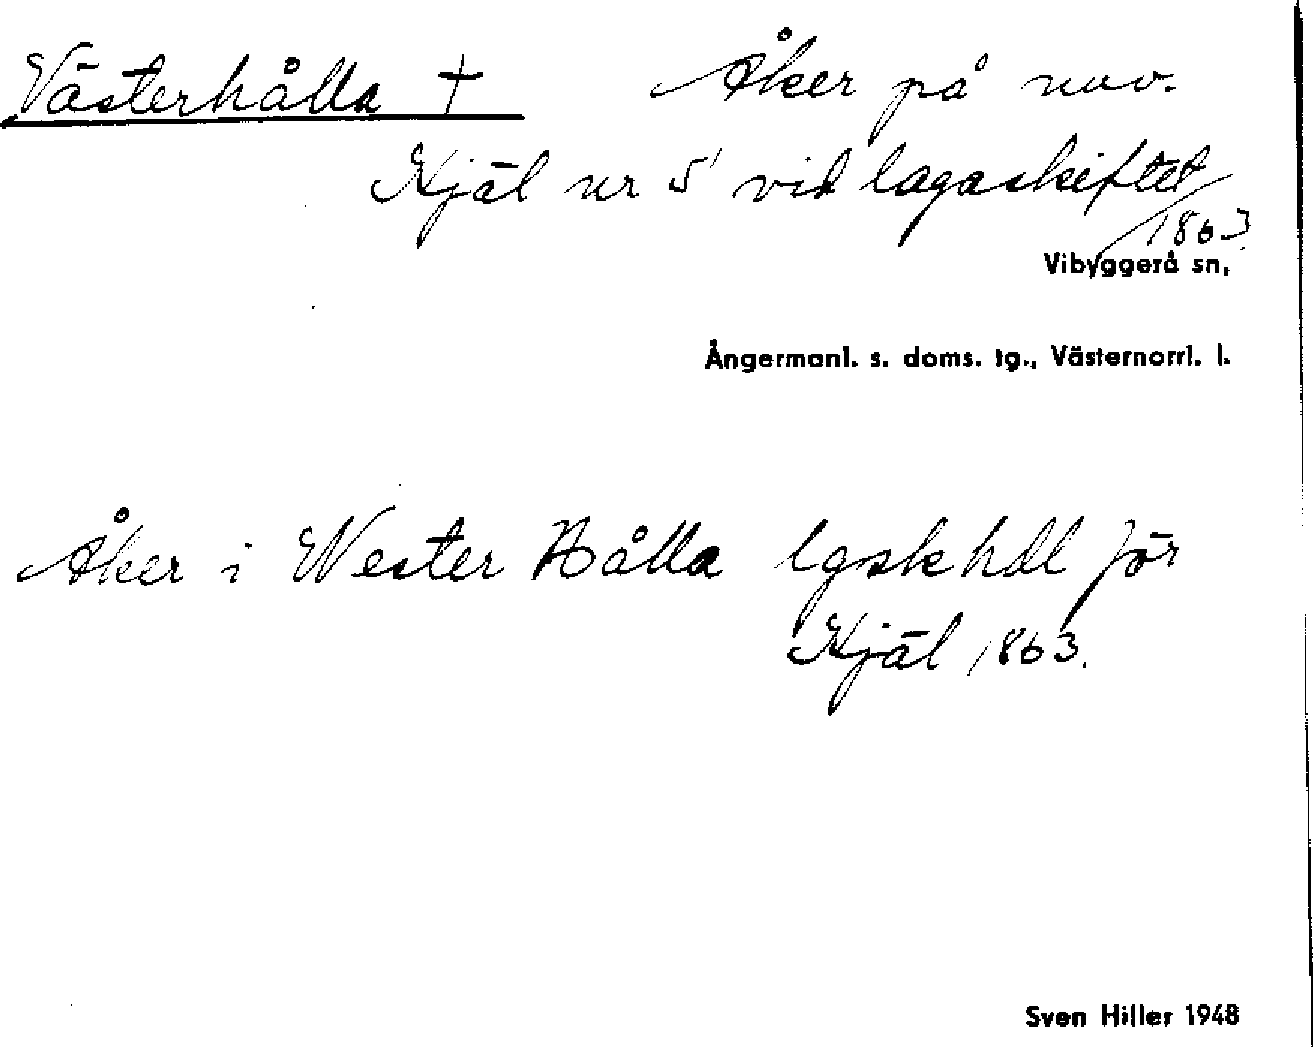 Västerhålla † Åker på nuv.
Kjäl nr 5 vid lagaskiftet
1863
Vibyggerå sn,
Ångermanl. s. doms. tg., Västernorrl. l.
Åker i Wester Hålla lgsk hdl för
Kjäl 1863.
Sven Hiller 1948